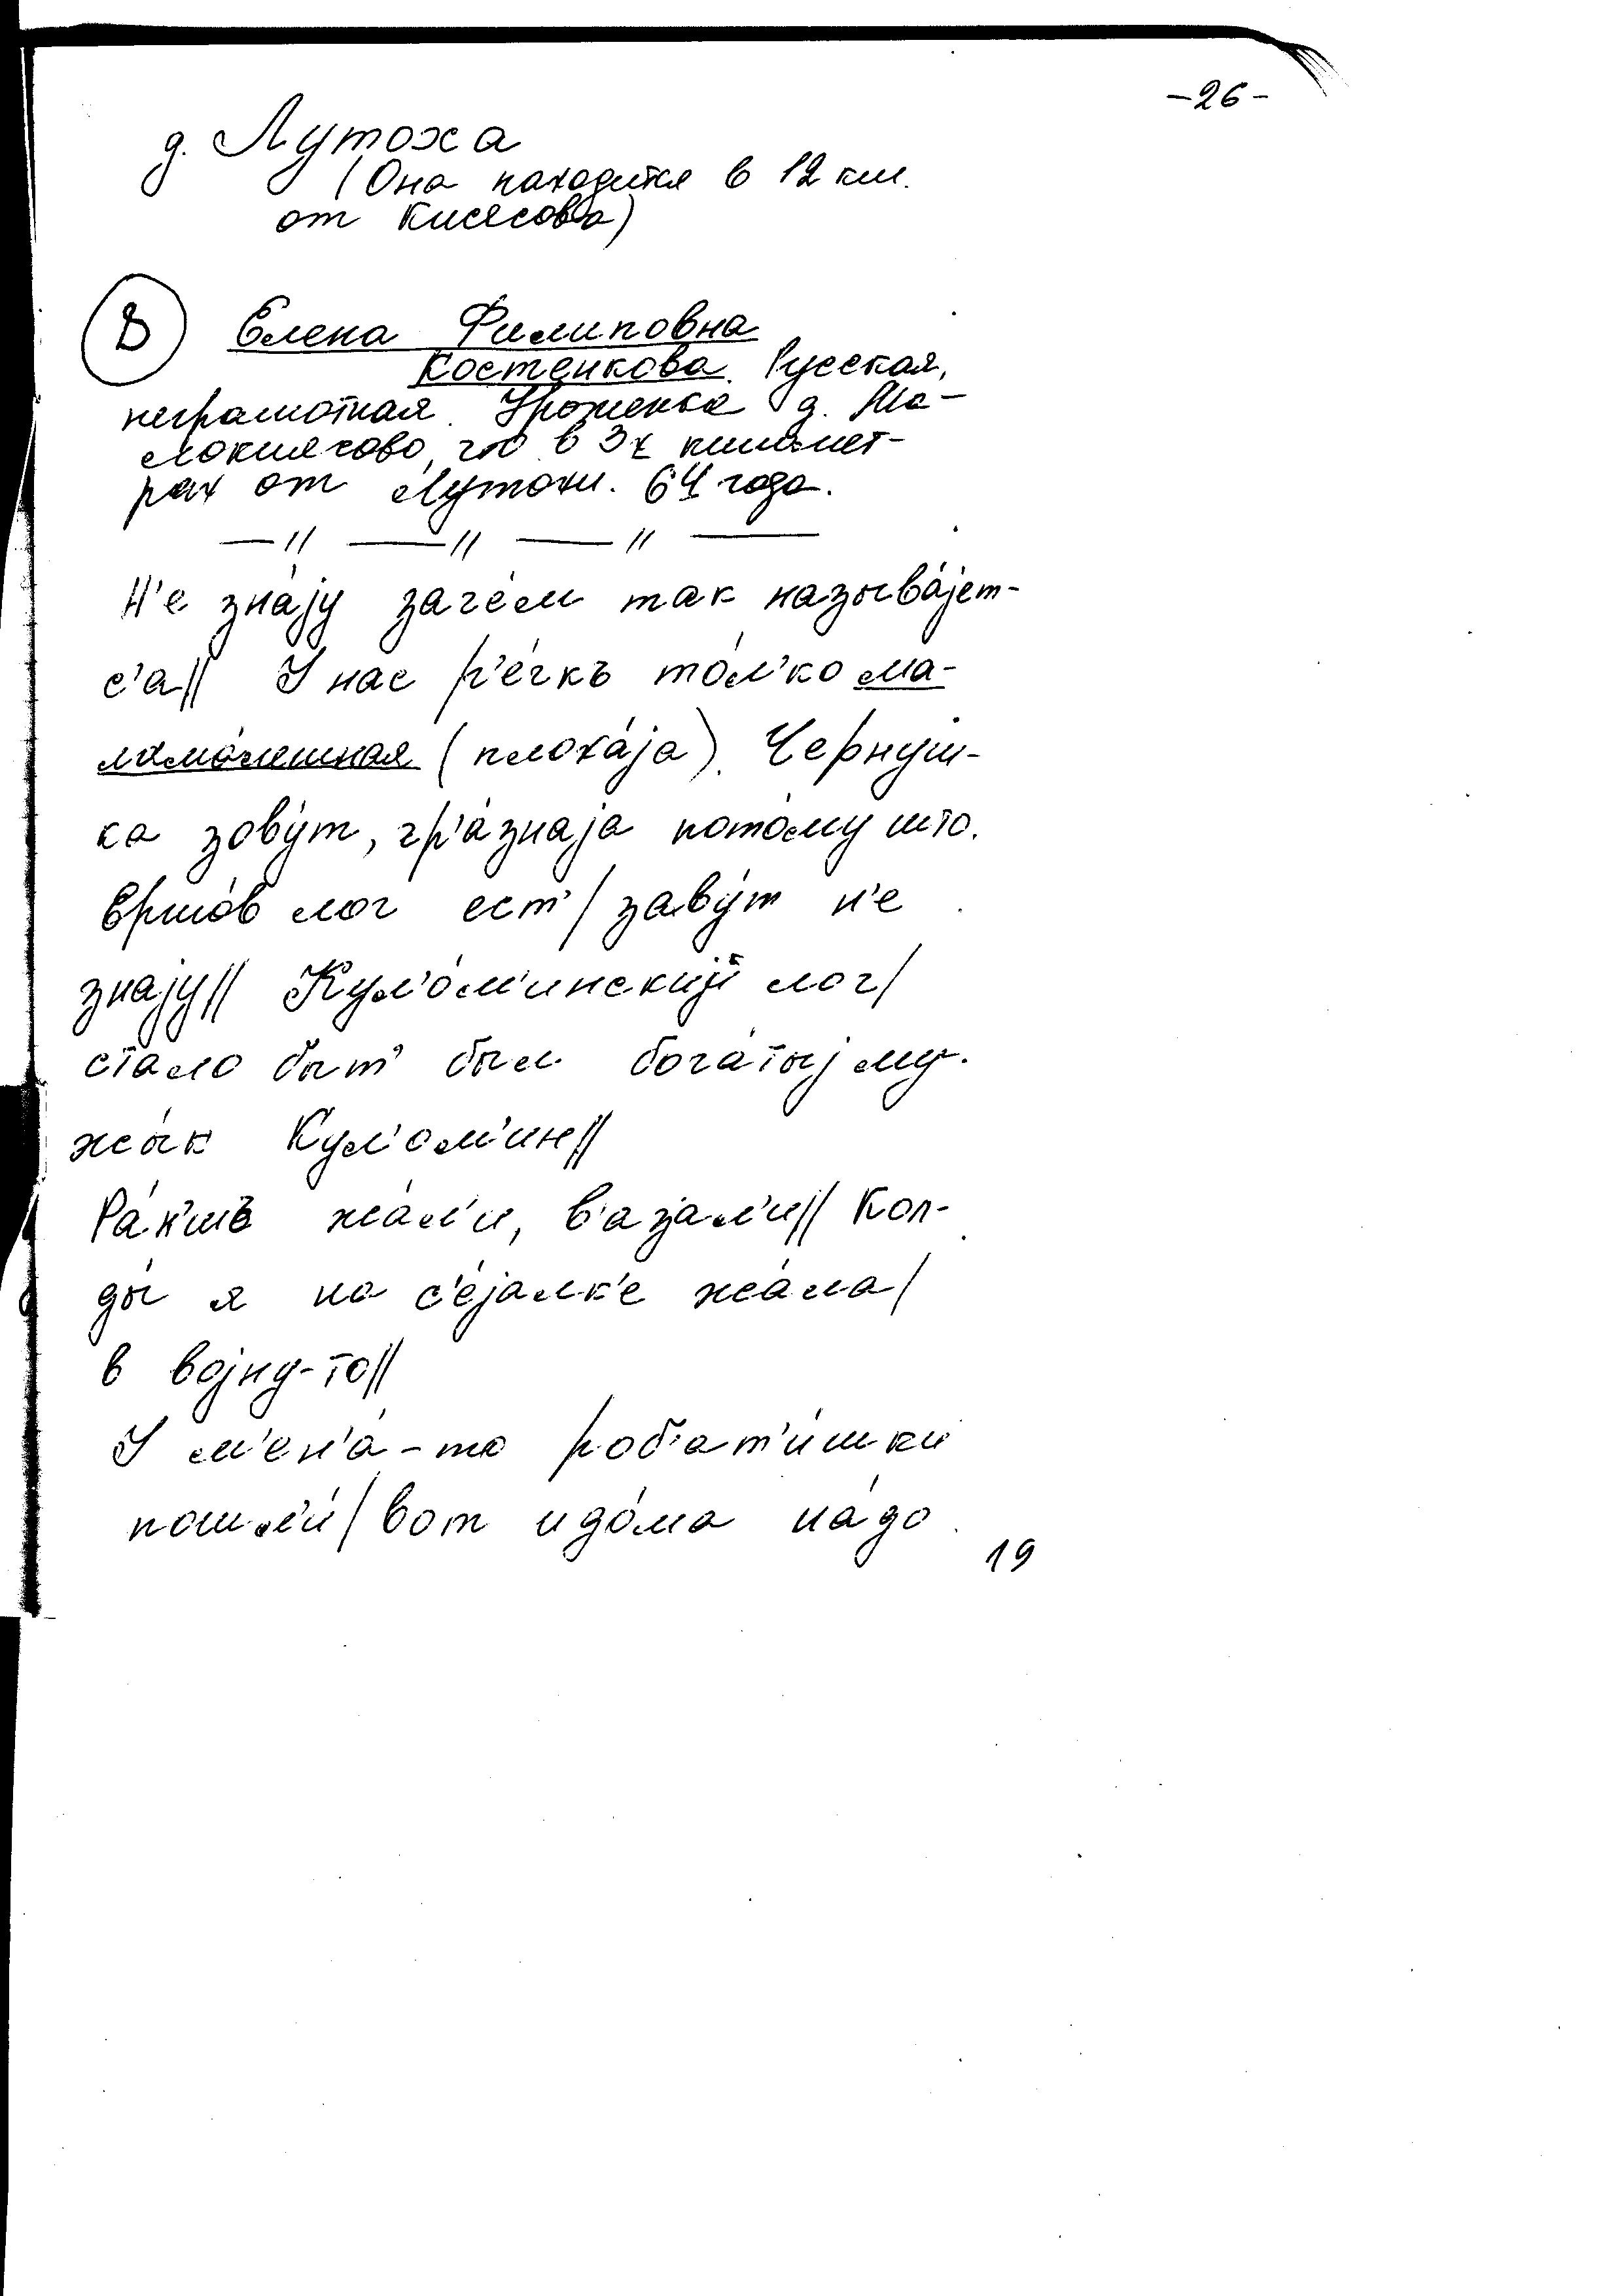 -26-
д. Лутоха
(Она находится в 12 км.
от Киясова)
8 Елена Филиповна
Костенкова. Русская,
неграмотная. Уроженка д. Ма-
локиясово, что в 3х километ-
рах от Лутохи. 64 года.
— // — // — // —
Н'е зна́jу заче́м так называ́jет-
с'а// У нас р'е́чкъ то́л'ко ма-
ламо́чешная (плоха́jа). Чернуш-
ка зову́т, гр'а́знаjа пото́му што.
Ершо́в лог ест'/ заву́т н'е
зна́jу// Кул'о́м'инскиj лог/
стало быт' был бога́тыj му-
жы́к Кул'ом'ин//
Ра́н'шъ жа́л'и, в'аза́л'и// Кол-
ды́ я на с'е́jалк'е жа́ла/
в воjну-то//
У м'ен'а́-то роб'ат'и́шки
пошл'и́/ вот и до́ма на́до
19